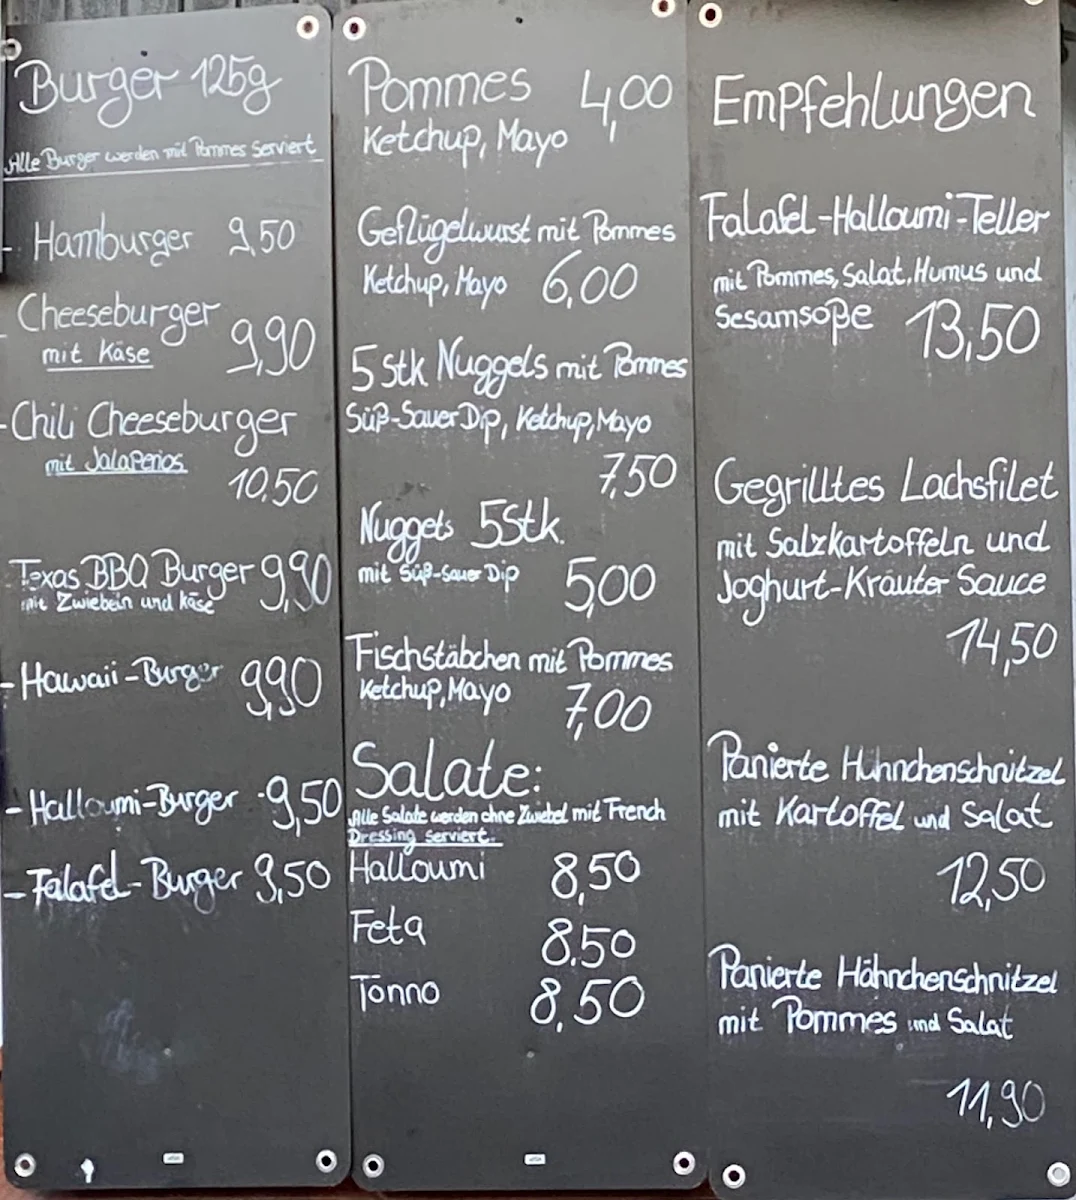 Burger 125g
Alle Burger werden mit Pommes serviert
- Hamburger 9,50
- Cheeseburger
mit Käse 9,90
- Chili Cheeseburger
mit Jalapeños
10,50
- Texas BBQ Burger 9,90
mit Zwiebeln und Käse
- Hawaii-Burger 9,90
- Halloumi-Burger 9,50
- Falafel-Burger 9,50
Pommes 4,00
Ketchup, Mayo
Geflügelwurst mit Pommes
Ketchup, Mayo 6,00
5 Stk Nuggels mit Pommes
Süß-Sauer Dip, Ketchup, Mayo
7,50
Nuggets 5 Stk.
mit Süß-Sauer Dip 5,00
Fischstäbchen mit Pommes
Ketchup, Mayo 7,00
Salate:
Alle Salate werden ohne Zwiebel mit French
Dressing serviert.
Halloumi 8,50
Feta 8,50
Tonno 8,50
Empfehlungen
Falafel-Halloumi-Teller
mit Pommes, Salat, Humus und
Sesamsoße 13,50
Gegrilltes Lachsfilet
mit Salzkartoffeln und
Joghurt-Kräuter Sauce
14,50
Panierte Hühnchenschnitzel
mit Kartoffel und Salat
12,50
Panierte Hähnchenschnitzel
mit Pommes und Salat
11,90